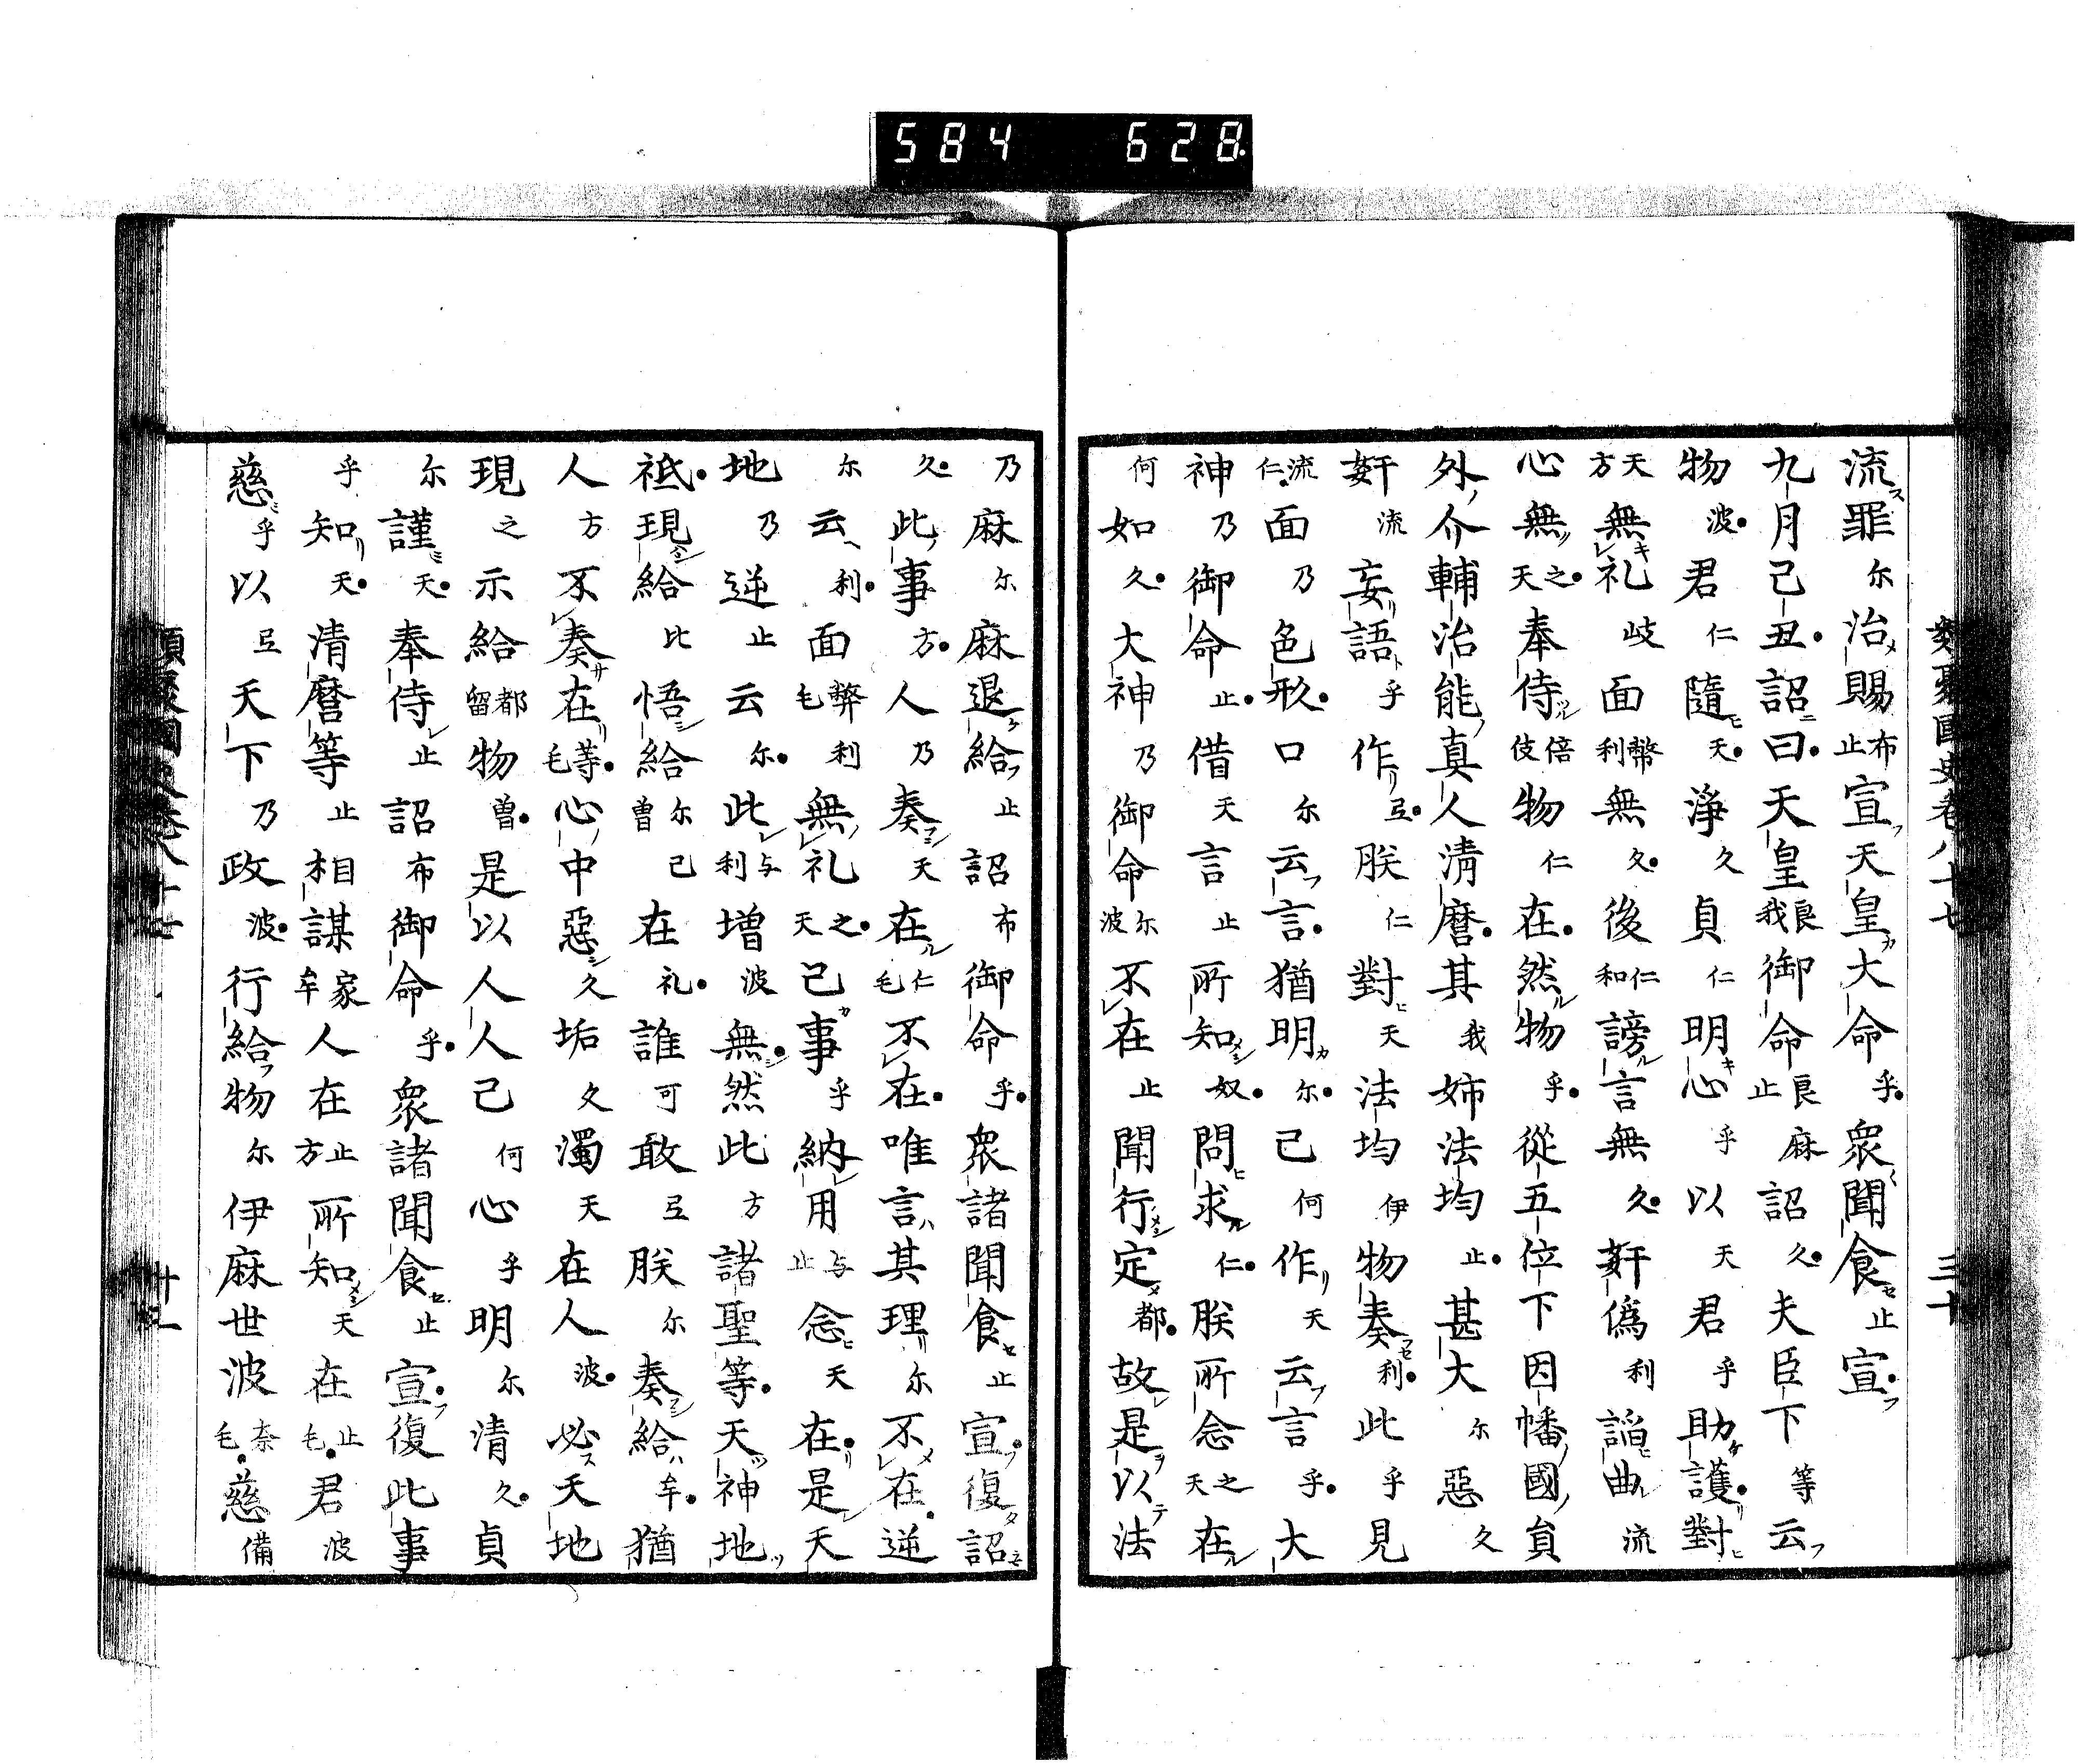 584 628
類聚國史卷八十七 三十
流罪尓治賜布止宣天皇大命乎衆聞食止宣
九月己丑詔曰天皇我良御命良止麻詔久夫臣下等云
物波君仁隨天淨久貞仁明心乎以天君乎助護對
天方無礼岐面幣利無久後仁和謗言無久奸僞利謟曲流
心無之天奉侍倍伎物仁在然物乎從五位下因幡國員
外介輔治能真人清麿其我姉法均止甚大尓惡久
奸流妄語乎作弖朕仁對天法均伊物奏利此乎見
流仁面乃色形口尓云言猶明尓己何作天云言乎大
神乃御命止借天言止所知奴問求仁朕所念之天在
何如久大神乃御命尓波不在止聞行定都故是以法
乃麻尓麻退給止詔布御命乎衆諸聞食止宣復詔
久此事方人乃奏天在仁毛不在唯言其理尓不在逆
尓云利面弊利毛無礼之天己事乎納用与止念天在是天
地乃逆止云尓此与利増波無然此方諸聖等天神地
祇現給比悟給尓曽己在礼誰可敢弖朕尓奏給牟猶
人方不奏在等毛心中惡久垢久濁天在人波必天地
現之示給都留物曽是以人人己何心乎明尓清久貞
尓謹天奉侍止詔布御命乎衆諸聞食止宣復此事
乎知天清麿等止相謀家牟人在止方所知天在止毛君波
慈乎以弖天下乃政波行給物尓伊麻世波奈毛慈備
類聚國史卷八十七